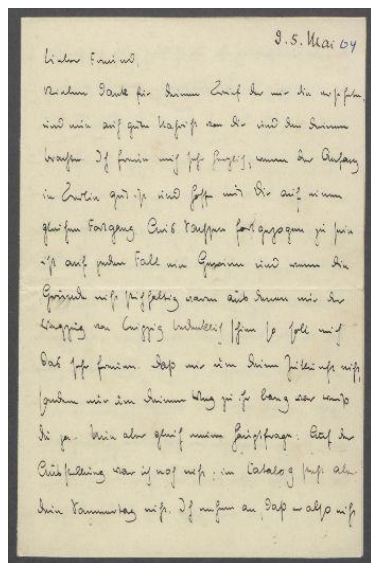 9.5. Mai 04
Lieber Freund,
Vielen Dank für Deinen Brief der mir die ersehnten
und nun auch guten Nachricht von Dir und den Deinen
brachte. Ich freue mich sehr herzlich, wenn der Anfang
in Berlin gut ist und hoffe mit Dir auf einen
gleichen Fortgang. Aus Sachsen fortgezogen zu sein
ist auf jeden Fall ein Gewinn und wenn die
Gründe nicht stichhaltig waren aus denen mir der
Wegzug von Leipzig bedenklich schien so soll mich
das sehr freuen. Daß mir um Deine Zukunft nicht,
sondern nur um Deinen Weg zu ihr bang war weißt
Du ja. Nun aber gleich meine Hauptfrage: Auf der
Ausstellung war ich noch nicht; im Catalog steht aber
Dein Sommertag nicht. Ich nehme an daß er also nicht